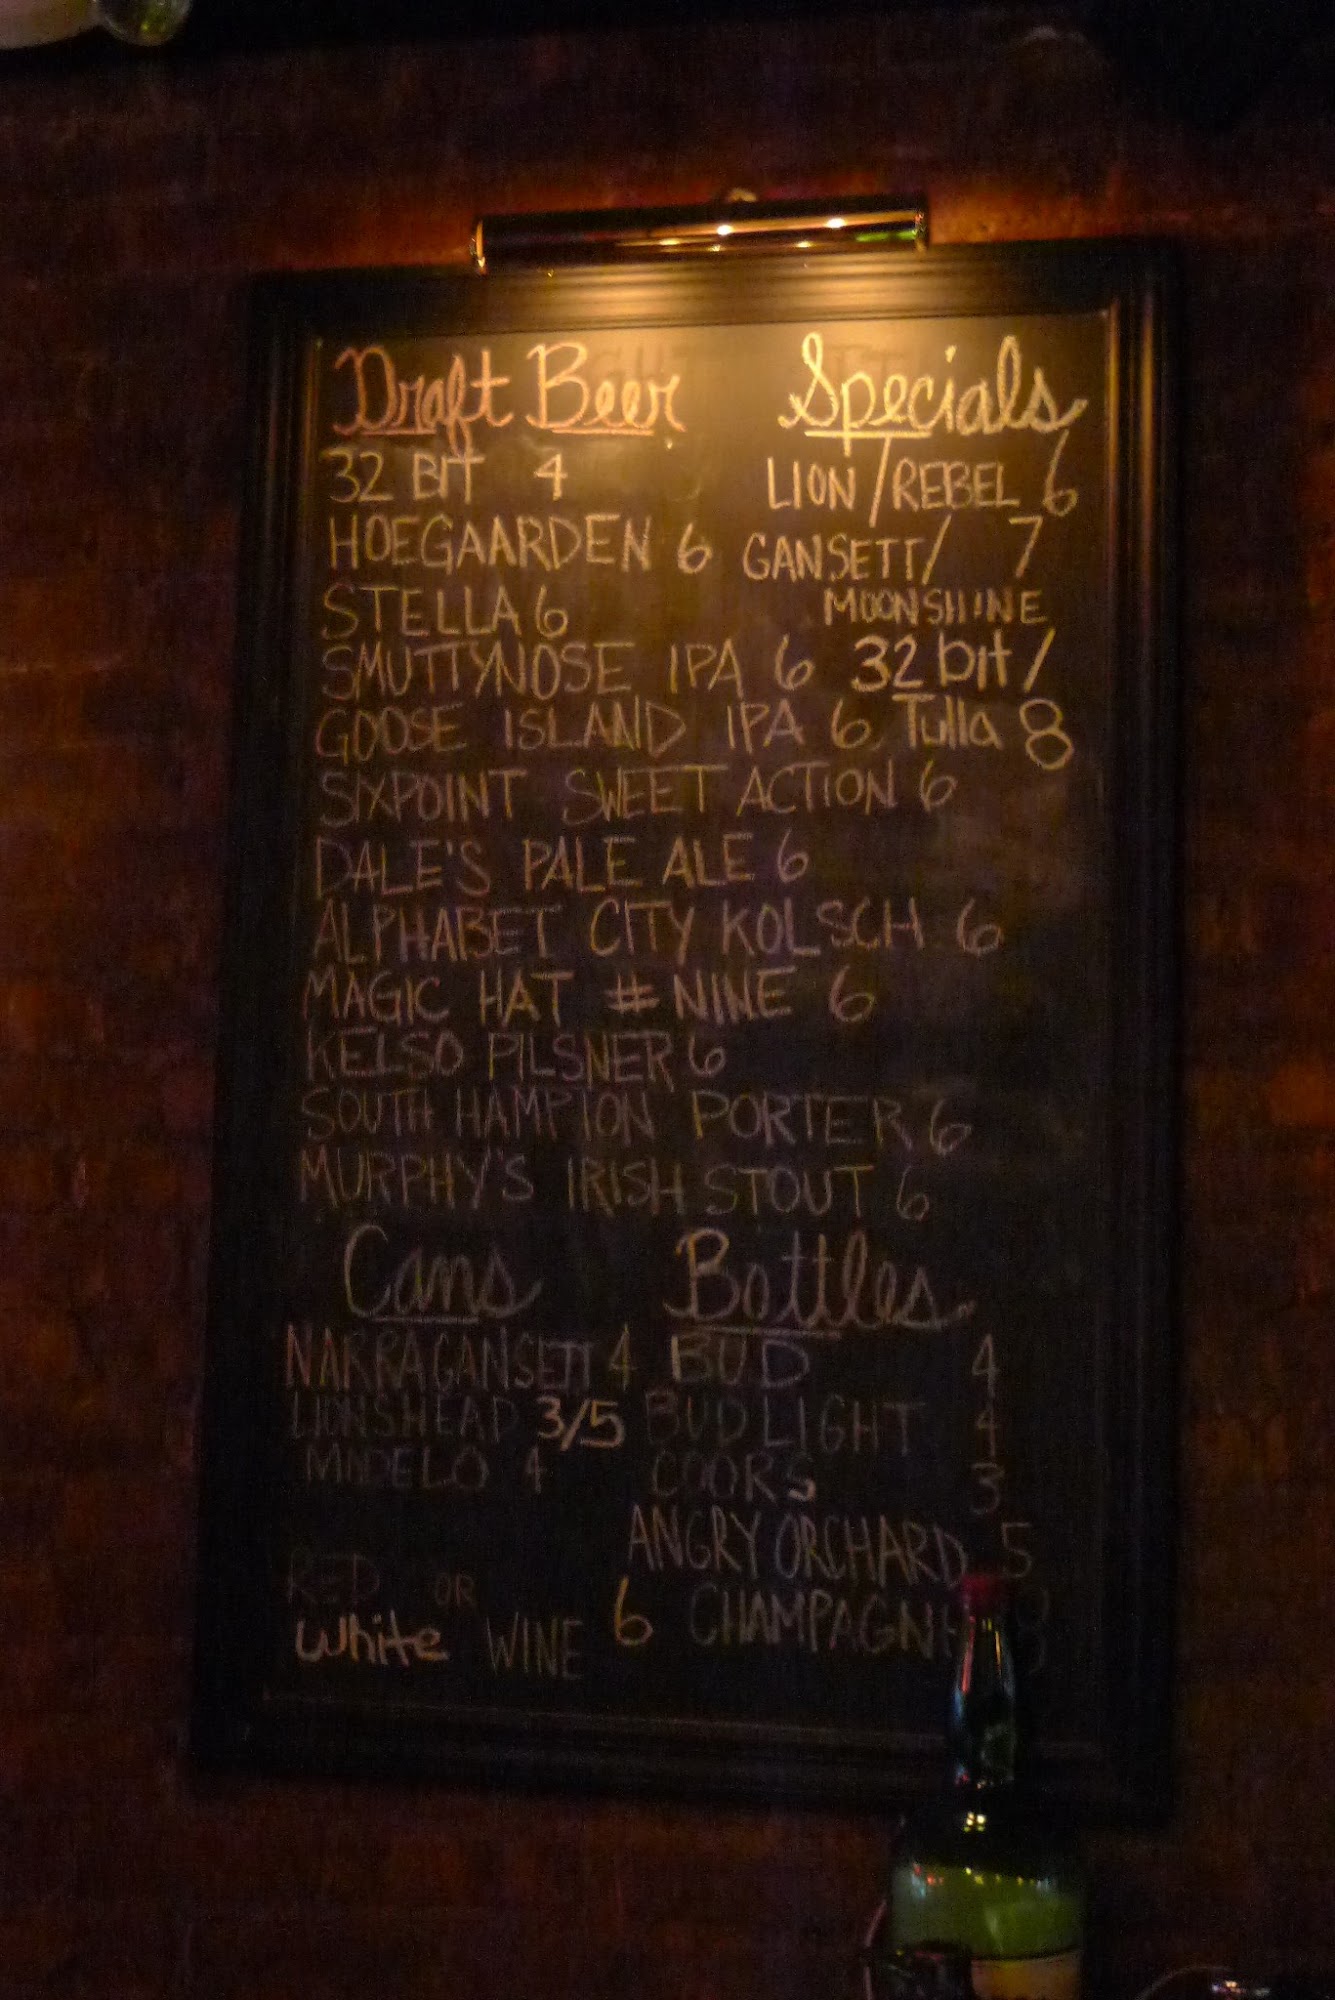 Draft Beer
32 BIT 4
HOEGAARDEN 6
STELLA 6
SMUTTYNOSE IPA 6
GOOSE ISLAND IPA 6
SIXPOINT SWEET ACTION 6
DALE'S PALE ALE 6
ALPHABET CITY KOLSCH 6
MAGIC HAT # NINE 6
KELSO PILSNER 6
SOUTH HAMPTON PORTER 6
MURPHY'S IRISH STOUT 6
Specials
LION/REBEL 6
GANSETT/ 7
MOONSHINE
32 bit/
Tulla 8
Cans
NARRAGANSETT 4
LIONSHEAD 3/5
MODELO 4
RED OR
White WINE 6
Bottles
BUD 4
BUD LIGHT 4
COORS 3
ANGRY ORCHARD 5
CHAMPAGNE